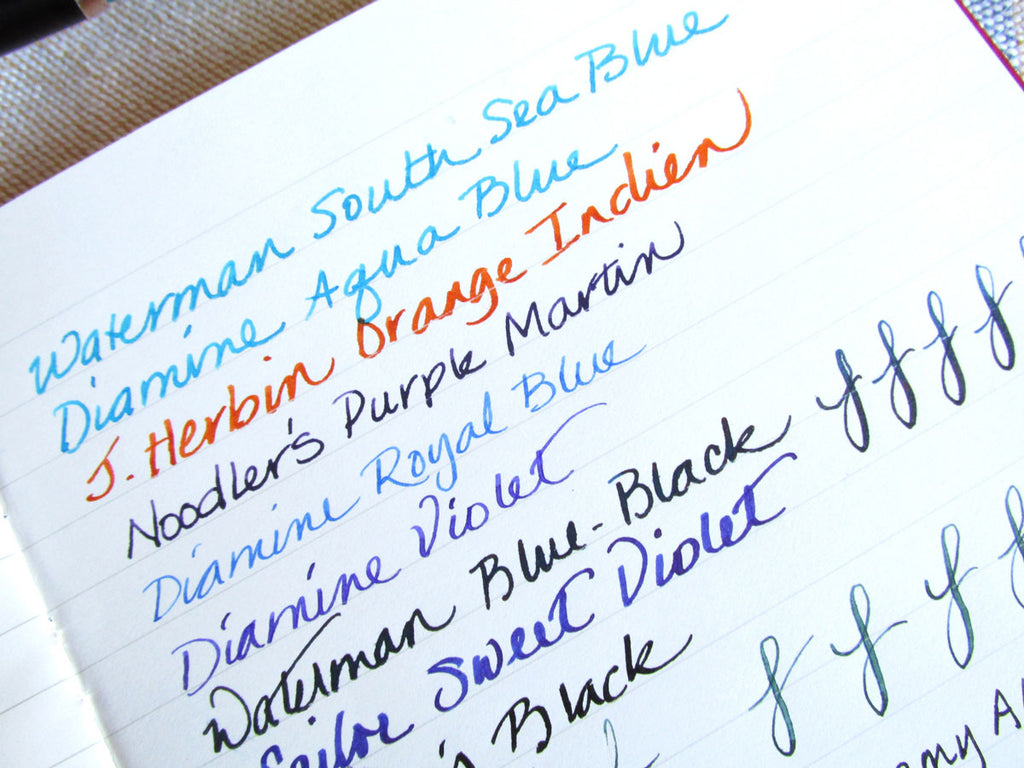 Waterman South Sea Blue
Diamine Aqua Blue
J. Herbin Orange Indien
Noodler's Purple Martin
Diamine Royal Blue
Diamine Violet
Waterman Blue-Black f f f f
Sailor Sweet Violet
Black f f f